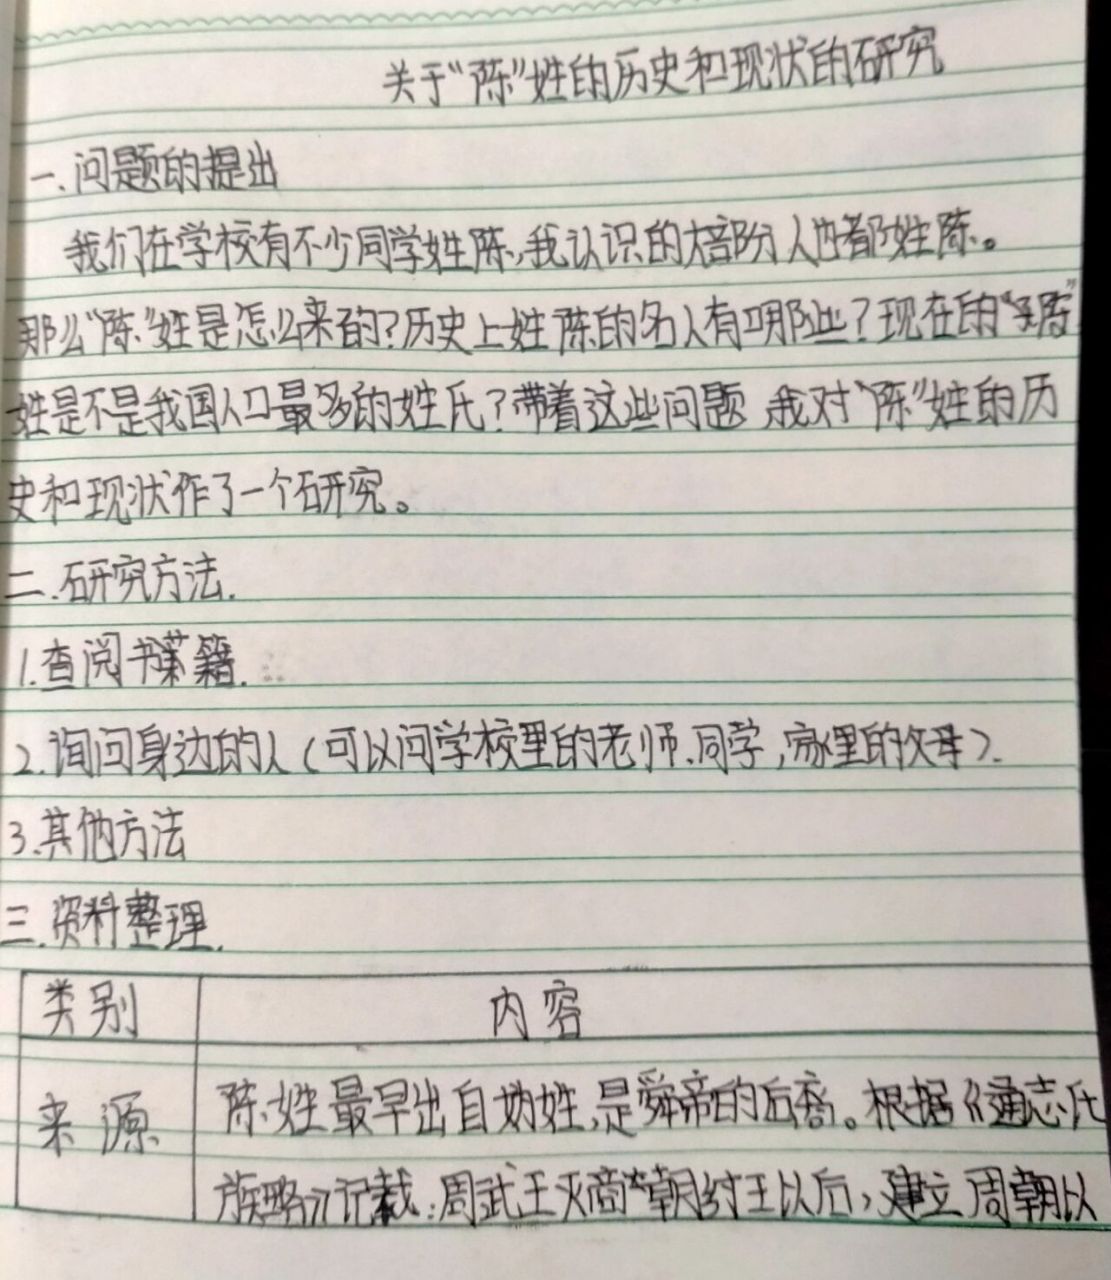 关于“陈”姓的历史和现状的研究
一.问题的提出
我们在学校有不少同学姓陈,我认识的大部分人也都姓陈。
那么“陈”姓是怎么来的?历史上姓陈的名人有哪些?现在的“陈”
姓是不是我国人口最多的姓氏?带着这些问题 我对“陈”姓的历
史和现状作了一个研究。
二.研究方法.
1.查阅书籍.
2.询问身边的人(可以问学校里的老师.同学,家里的父母).
3.其他方法
三.资料整理.
类别 内容
来源 陈姓最早出自妫姓,是舜帝的后裔。根据《通志氏
族略》记载:周武王灭商朝纣王以后,建立周朝以